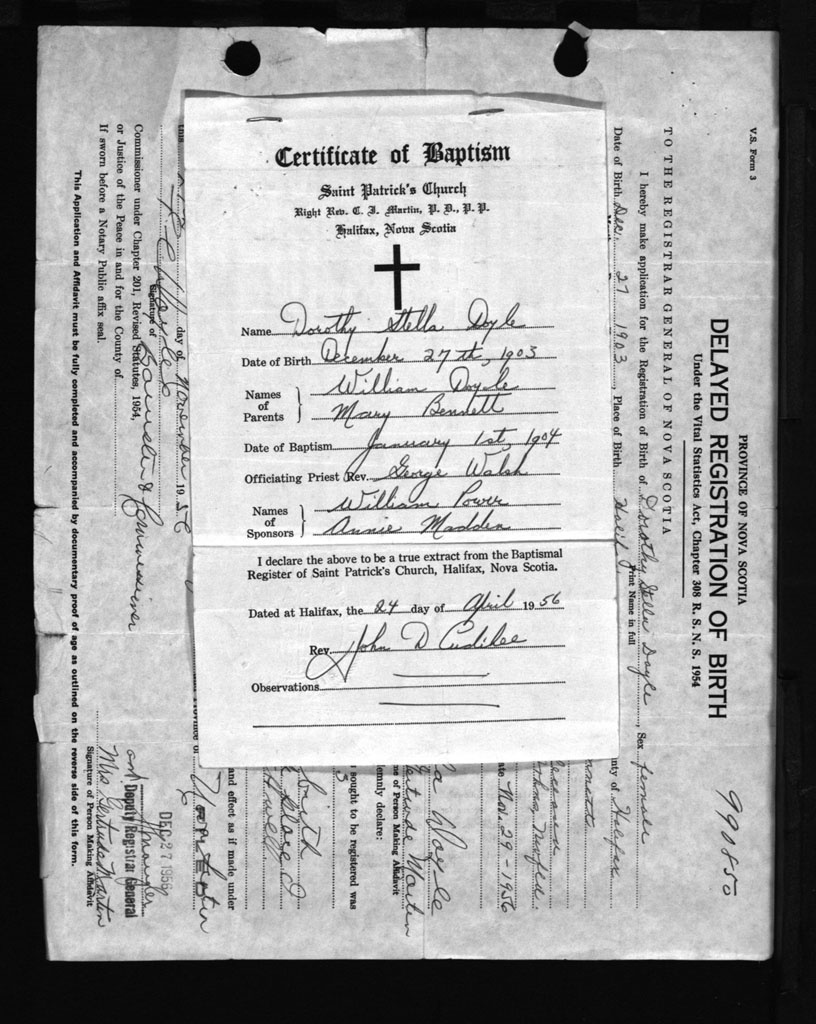 Certificate of Baptism
Saint Patrick's Church
Right Rev. C. J. Martin, P. D., P. P.
Halifax, Nova Scotia
Name Dorothy Stella Doyle
Date of Birth December 27th, 1903
Names of Parents William Doyle
Mary Bennett
Date of Baptism January 1st, 1904
Officiating Priest Rev. George Walsh
Names of Sponsors William Power
Annie Madden
I declare the above to be a true extract from the Baptismal
Register of Saint Patrick's Church, Halifax, Nova Scotia.
Dated at Halifax, the 24 day of April 1956
Rev. John D
Observations
V.S. Form 3
PROVINCE OF NOVA SCOTIA
DELAYED REGISTRATION OF BIRTH
Under the Vital Statistics Act, Chapter 308 R. S. N. S. 1954
990850
TO THE REGISTRAR GENERAL OF NOVA SCOTIA
I hereby make application for the Registration of Birth of Dorothy Stella Doyle, Sex female
Print Name in full
Date of Birth Dec. 27 1903, Place of Birth Halif nty of Halifax
ate Nov. 29 - 1956
a Doyle
Gertrude Martin
me of Person Making Affidavit
lemnly declare:
sought to be registered was
3
birth
and effect as if made under
day of November 1956
Signature of
Barrister & Commissioner
Commissioner under Chapter 201, Revised Statutes, 1954,
or Justice of the Peace in and for the County of
If sworn before a Notary Public affix seal.
DEC 27 1956
Deputy Registrar General
Mrs Gertrude Martin
Signature of Person Making Affidavit
This Application and Affidavit must be fully completed and accompanied by documentary proof of age as outlined on the reverse side of this form.